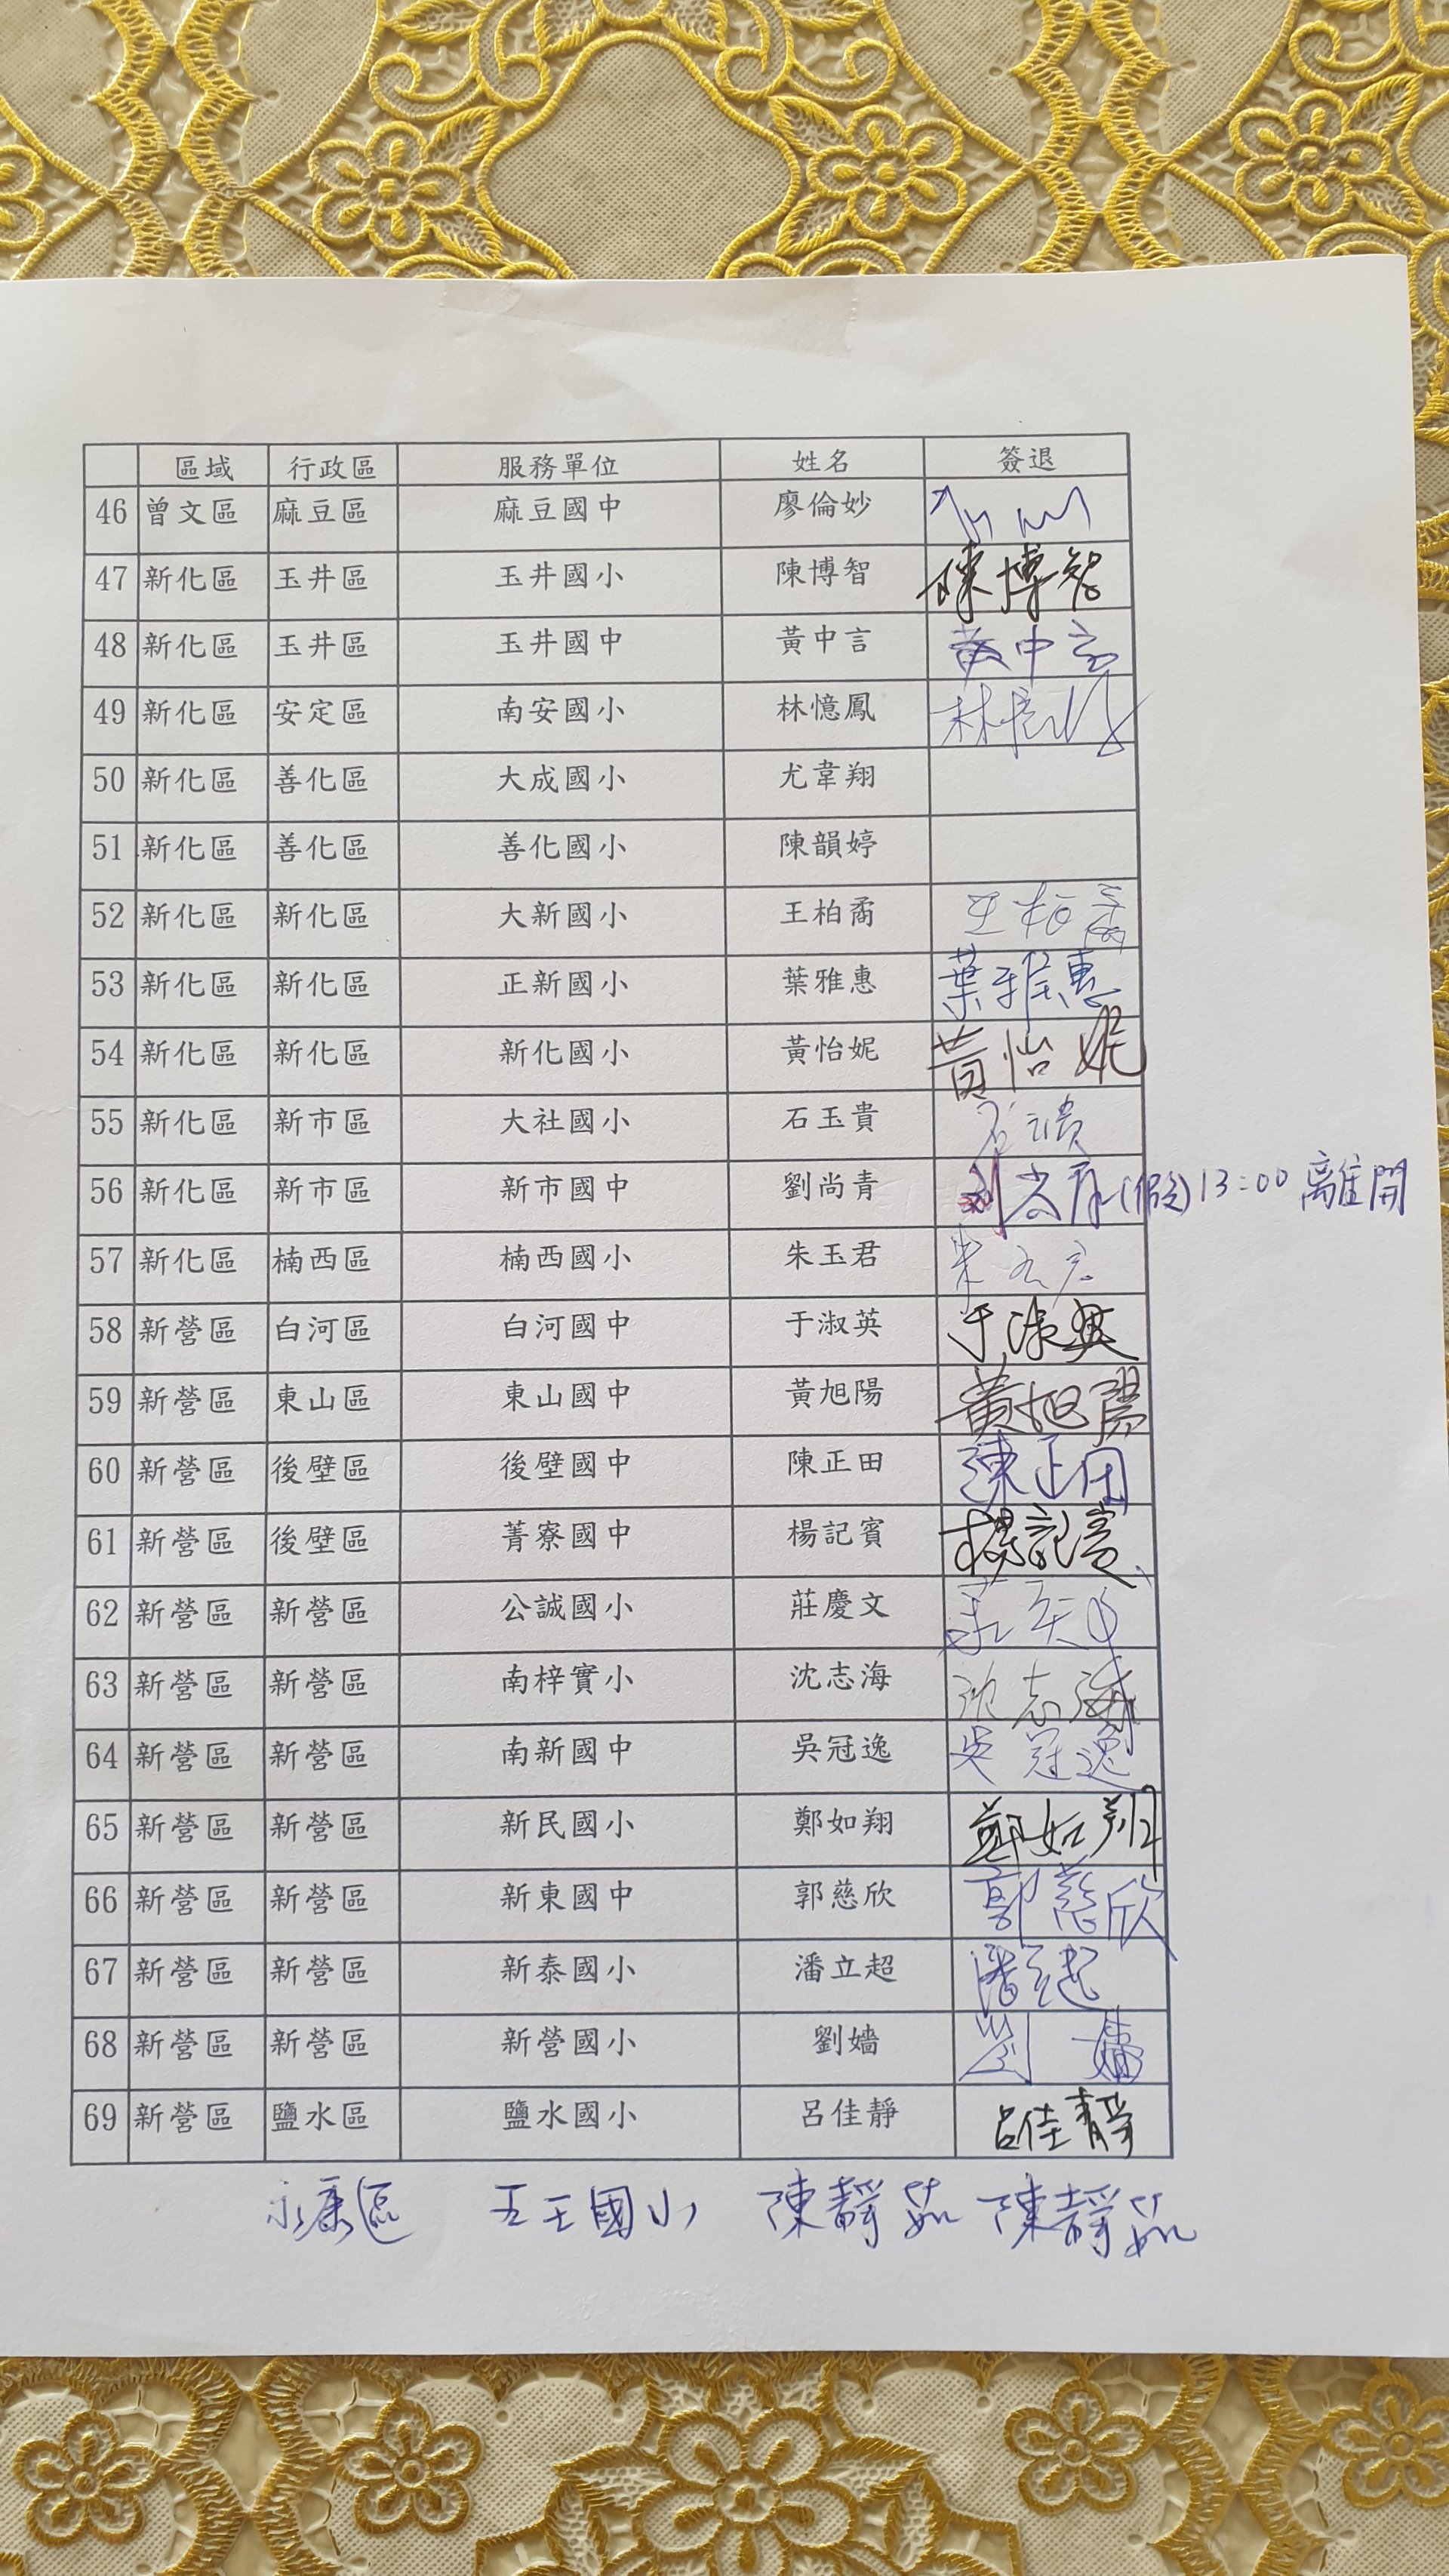 區域 行政區 服務單位 姓名 簽退
46 曾文區 麻豆區 麻豆國中 廖倫妙
47 新化區 玉井區 玉井國小 陳博智 陳博智
48 新化區 玉井區 玉井國中 黃中言 黃中言
49 新化區 安定區 南安國小 林憶鳳 林憶鳳
50 新化區 善化區 大成國小 尤韋翔
51 新化區 善化區 善化國小 陳韻婷
52 新化區 新化區 大新國小 王柏矞 王柏矞
53 新化區 新化區 正新國小 葉雅惠 葉雅惠
54 新化區 新化區 新化國小 黃怡妮 黃怡妮
55 新化區 新市區 大社國小 石玉貴 石玉貴
56 新化區 新市區 新市國中 劉尚青 刘尚青(假)13:00離開
57 新化區 楠西區 楠西國小 朱玉君 朱玉君
58 新營區 白河區 白河國中 于淑英 于淑英
59 新營區 東山區 東山國中 黃旭陽 黃旭陽
60 新營區 後壁區 後壁國中 陳正田 陳正田
61 新營區 後壁區 菁寮國中 楊記賓 楊記賓
62 新營區 新營區 公誠國小 莊慶文
63 新營區 新營區 南梓實小 沈志海 沈志海
64 新營區 新營區 南新國中 吳冠逸 吳冠逸
65 新營區 新營區 新民國小 鄭如翔 鄭如翔
66 新營區 新營區 新東國中 郭慈欣 郭慈欣
67 新營區 新營區 新泰國小 潘立超 潘立超
68 新營區 新營區 新營國小 劉嬙 劉嬙
69 新營區 鹽水區 鹽水國小 呂佳靜 呂佳靜
永康區 五王國小 陳靜茹 陳靜茹